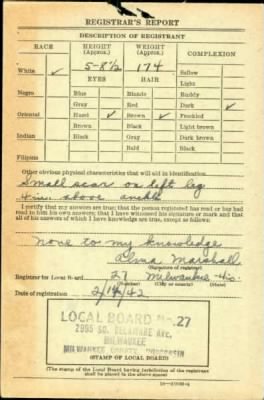 REGISTRAR'S REPORT
DESCRIPTION OF REGISTRANT
RACE HEIGHT (Approx.) WEIGHT (Approx.) COMPLEXION
5-8½ 174
White ✓ Sallow
EYES HAIR Light
Negro Blue Blonde Ruddy
Gray Red Dark ✓
Oriental Hazel ✓ Brown ✓ Freckled
Brown Black Light brown
Indian Black Gray Dark brown
Bald Black
Filipino
Other obvious physical characteristics that will aid in identification
Small scar on left leg
4 in. above ankle
I certify that my answers are true; that the person registered has read or has had
read to him his own answers; that I have witnessed his signature or mark and that
all of his answers of which I have knowledge are true, except as follows:
None to my knowledge
Alma Marshall
(Signature of registrar)
Registrar for Local Board 27 Milwaukee Wis.
(Number) (City or county) (State)
Date of registration 2/16/42
LOCAL BOARD No. 27
SO. DELAWARE AVE.
MILWAUKEE
MILWAUKEE COUNTY, WISCONSIN
(STAMP OF LOCAL BOARD)
(The stamp of the Local Board having jurisdiction of the registrant
shall be placed in the above space.)